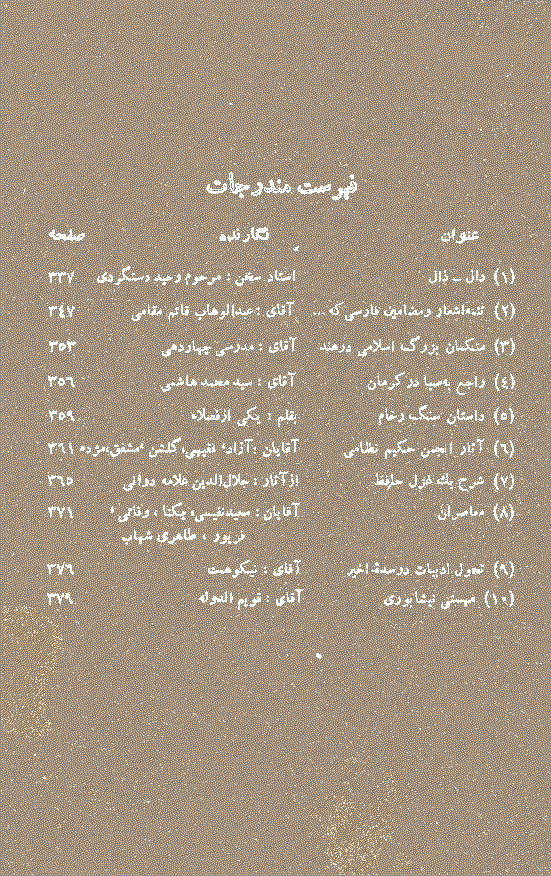 فهرست مندرجات
عنوان نگارنده صفحه
(۱) دال ـ ذال استاد سخن : مرحوم وحید دستگردی ۳۳۷
(۲) تتمهاشعار ومضامین فارسی‌که ... آقای : عبدالوهاب قائم مقامی ۳٤۷
(۳) متکمان بزرگ اسلامی درهند آقای : مدرسی چهاردهی ۳٥۳
(٤) راجع به‌صبا در کرمان آقای : سید محمد هاشمی ۳٥٦
(٥) داستان سنگ رخام بقلم : یکی ازفضلاء ۳٥۹
(٦) آثار انجمن حکیم نظامی آقایان : آزاد، فقیهی، گلشن، مشفق، مژده ۳٦۱
(۷) شرح یك غزل حافظ ازآثار : جلال‌الدین علامه دوانی ۳٦٥
(۸) معاصران آقایان : سعیدنفیسی، یکتا ، وفائی،
فرپور ، طاهری شهاب ۳۷۱
(۹) تحول ادبیات درسدهٔ اخیر آقای : نیکوهمت ۳۷٦
(۱۰) مهستی نیشابوری آقای : قویم الدوله ۳۷۹